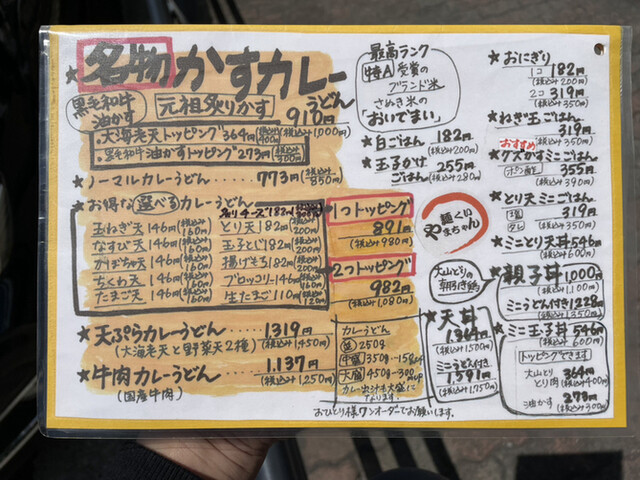 ★名物かすカレーうどん
黒毛和牛油かす
元祖炙りかす
910円
(税込み1,000円)
・大海老天トッピング364円(税込み400円)
・黒毛和牛油かすトッピング273円(税込み300円)
★ノーマルカレーうどん 773円(税込み850円)
★お得な選べるカレーうどん
182円
玉ねぎ天146円(税込み160円) とり天182円(税込み200円)
なすび天146円(税込み160円) 玉子とじ182円(税込み200円)
かぼちゃ天146円(税込み160円) 揚げもち182円(税込み200円)
ちくわ天146円(税込み160円) ブロッコリー146円(税込み160円)
たまご天146円(税込み160円) 生たまご110円(税込み120円)
1つトッピング
891円
(税込み980円)
2つトッピング
982円
(税込み1,080円)
★天ぷらカレーうどん……1319円
(大海老天と野菜天2種) (税込み1,450円)
★牛肉カレーうどん……1,137円
(国産牛肉) (税込み1,250円)
カレーうどん
並 250g
中盛 350g
大盛 450g
おひとり様ワンオーダーでお願いします。
最高ランク
特A受賞の
ブランド米
さぬき米の
「おいでまい」
★白ごはん 182円
(税込み200円)
★玉子かけごはん 255円
(税込み280円)
麺くい
やまちゃん
★おにぎり
1コ 182円
(税込み200円)
2コ 319円
(税込み350円)
★ねぎ玉ごはん
319円
(税込み350円)
おすすめ
★クズかすミニごはん
355円
(税込み390円)
★とり天ミニごはん
塩 319円
タレ (税込み350円)
★ミニとり天丼546円
(税込み600円)
大山どりの
★親子丼1,000円
(税込み1,100円)
ミニうどん付き1228円
(税込み1,350円)
★天丼
1,364円
(税込み1,500円)
ミニうどん付き
1,591円
(税込み1,750円)
★ミニ玉子丼546円
(税込み600円)
トッピングできます
大山どり
とり肉 364円
(税込み400円)
油かす 273円
(税込み300円)